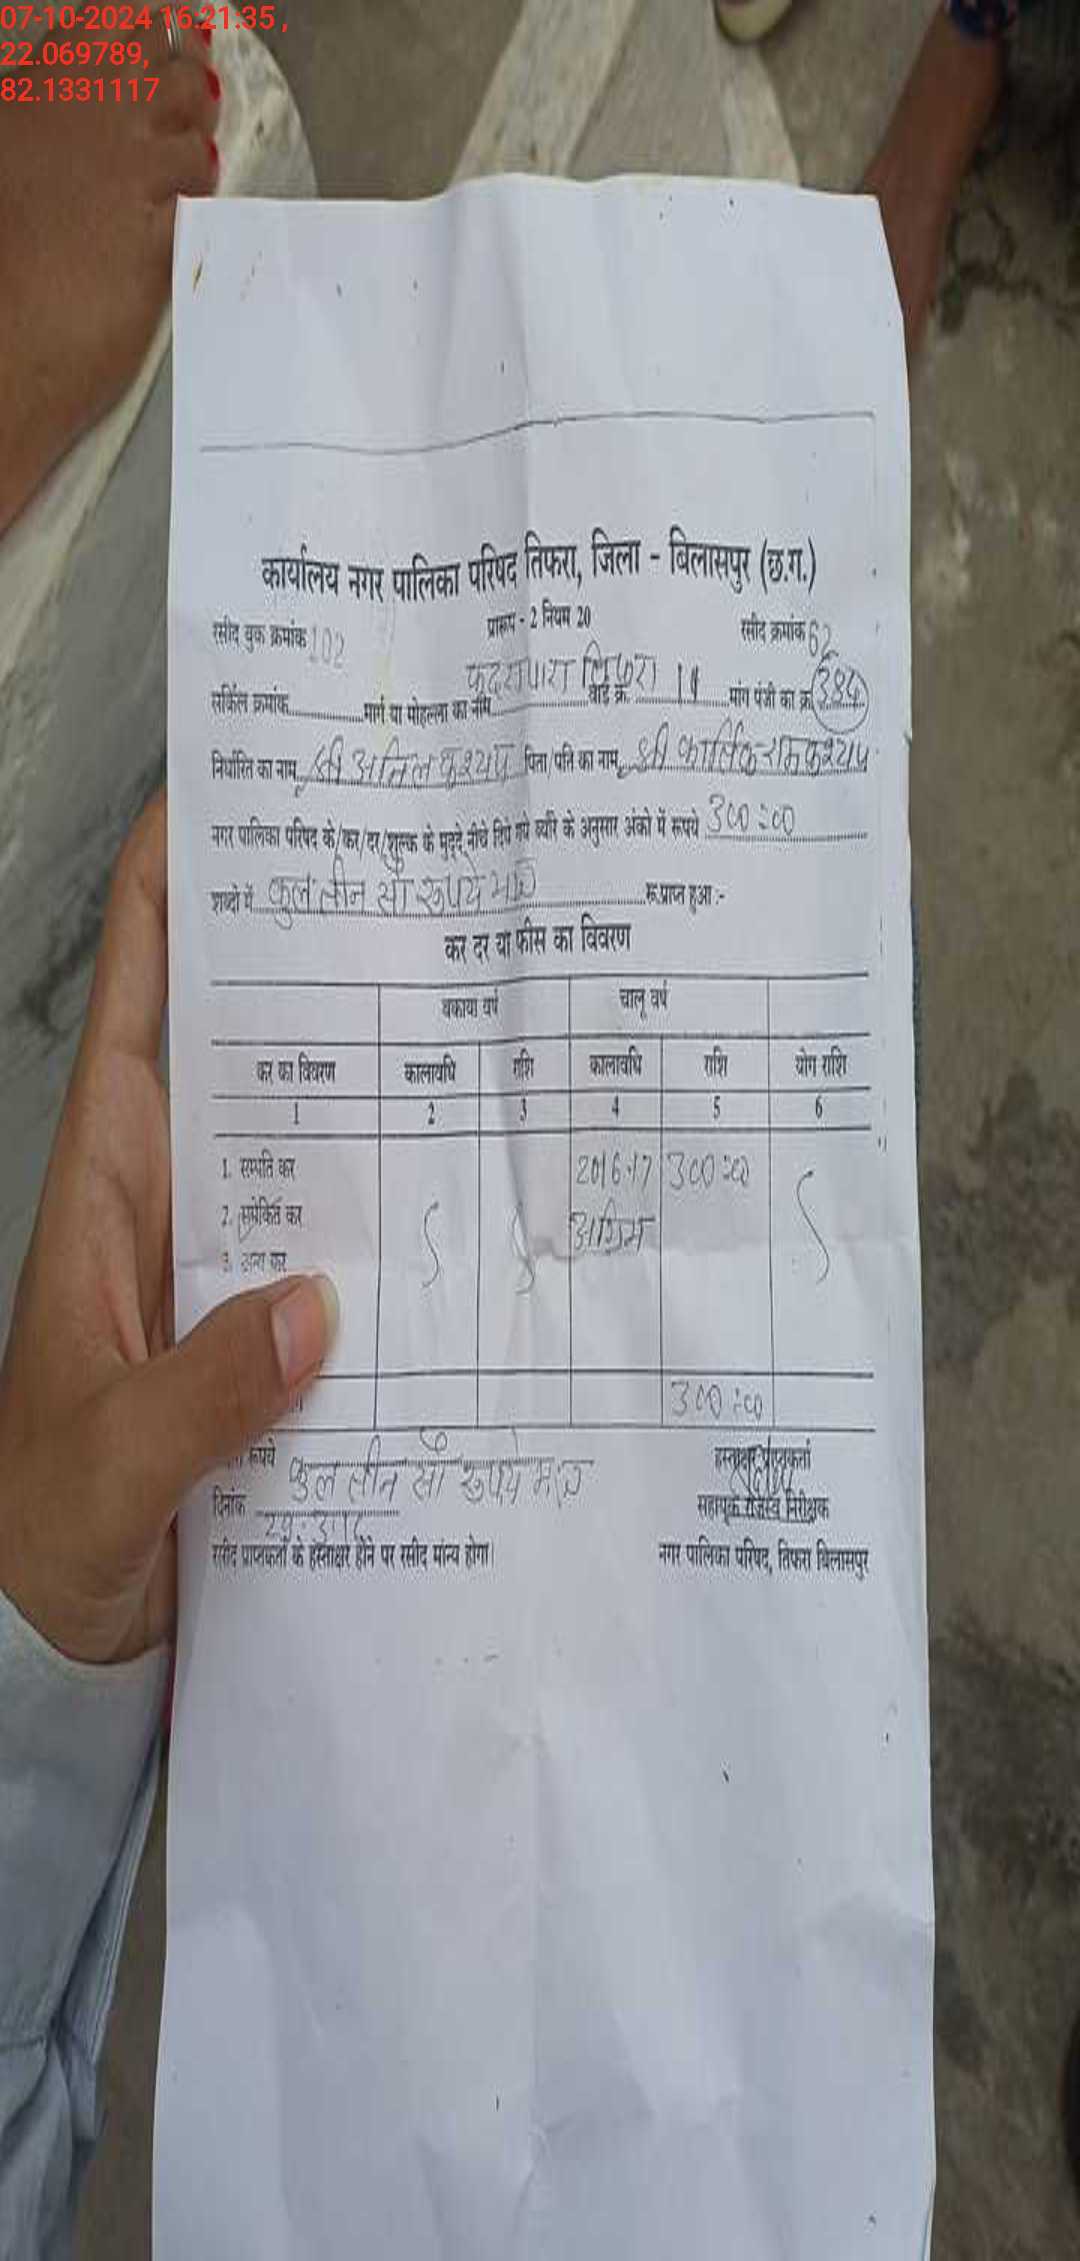 07-10-2024 16:21:35 ,
22.069789,
82.1331117
कार्यालय नगर पालिका परिषद तिफरा, जिला - बिलासपुर (छ.ग.)
रसीद बुक क्रमांक 102 प्रारूप - 2 नियम 20 रसीद क्रमांक 62
सर्किल क्रमांक............मार्ग या मोहल्ला का नाम तिफरा वार्ड क्र. 11 मांग पंजी का क्र. 384
निर्धारित का नाम श्री अनिल कश्यप पिता/पति का नाम श्री कार्तिक राम कश्यप
नगर पालिका परिषद के/कर/दर/शुल्क के मुद्दे नीचे दिये गये ब्यौरे के अनुसार अंको में रूपये 300=00
शब्दो में कुल तीन सौ रूपये मात्र रू.प्राप्त हुआ :-
कर दर या फीस का विवरण
बकाया वर्ष चालू वर्ष
कर का विवरण कालावधि राशि कालावधि राशि योग राशि
1 2 3 4 5 6
1. सम्पति कर 2016-17 300=00
2. समेकित कर अग्रिम
3. अन्य कर
300=00
रूपये कुल तीन सौ रूपये मात्र हस्ताक्षर प्राप्तकर्ता
दिनांक सहायक राजस्व निरीक्षक
रसीद प्राप्तकर्ता के हस्ताक्षर होने पर रसीद मांन्य होगा। नगर पालिका परिषद, तिफरा बिलासपुर